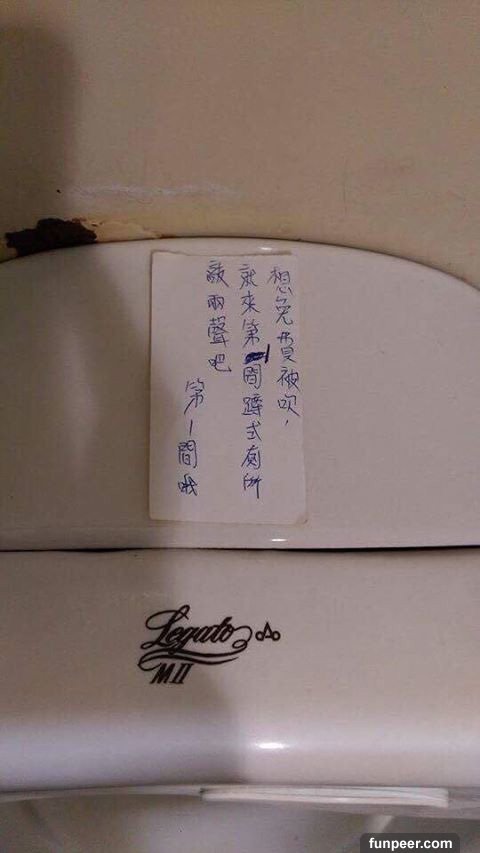 想免費被吹，
就來第間蹲式廁所
敲兩聲吧
第1間哦
Legato
MII
funpeer.com